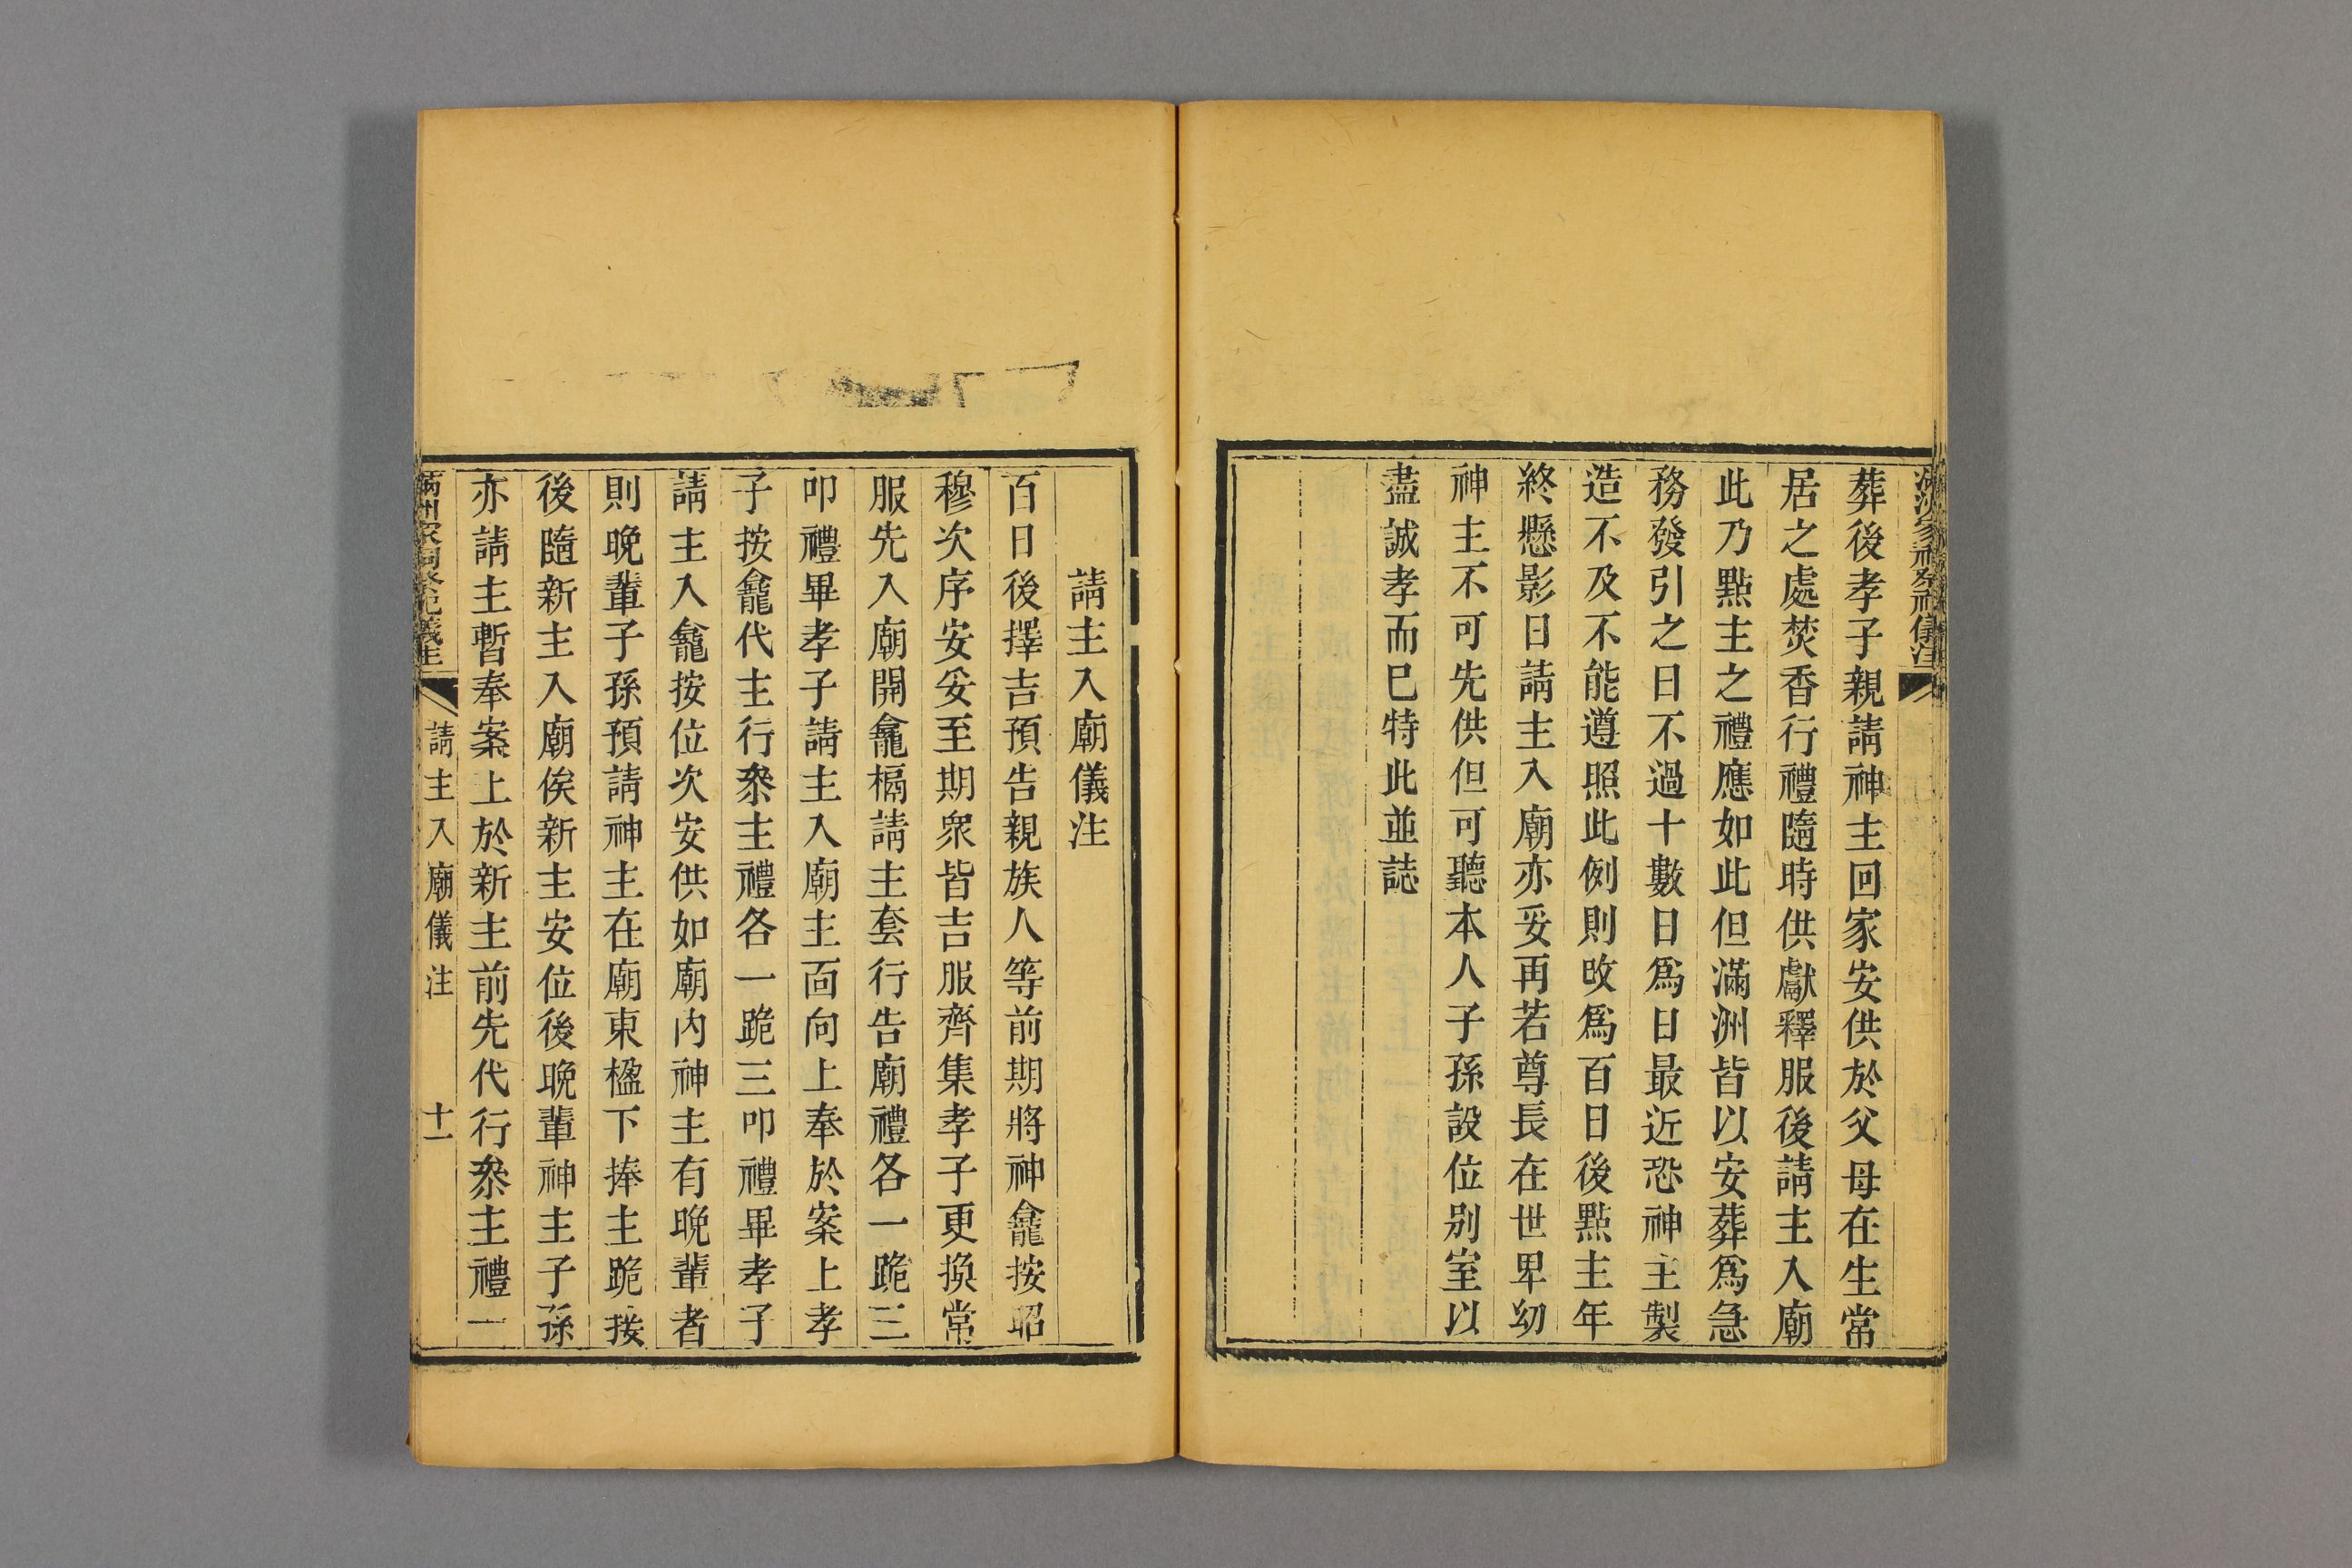 葬後孝子親請神主回家安供於父母在生常
居之處焚香行禮隨時供獻釋服後請主入廟
此乃點主之禮應如此但滿洲皆以安葬爲急
務發引之日不過十數日爲日最近恐神主製
造不及不能遵照此例則改爲百日後點主年
終懸影日請主入廟亦妥再若尊長在世卑幼
神主不可先供但可聽本人子孫設位别室以
盡誠孝而已特此並誌
請主入廟儀注
百日後擇吉預告親族人等前期將神龕按昭
穆次序安妥至期衆皆吉服齊集孝子更換常
服先入廟開龕槅請主套行告廟禮各一跪三
叩禮畢孝子請主入廟主面向上奉於案上孝
子按龕代主行叅主禮各一跪三叩禮畢孝子
請主入龕按位次安供如廟內神主有晚輩者
則晚輩子孫預請神主在廟東楹下捧主跪接
後隨新主入廟俟新主安位後晚輩神主子孫
亦請主暫奉案上於新主前先代行叅主禮一
滿洲家祠祭祀儀注
請主入廟儀注
十一